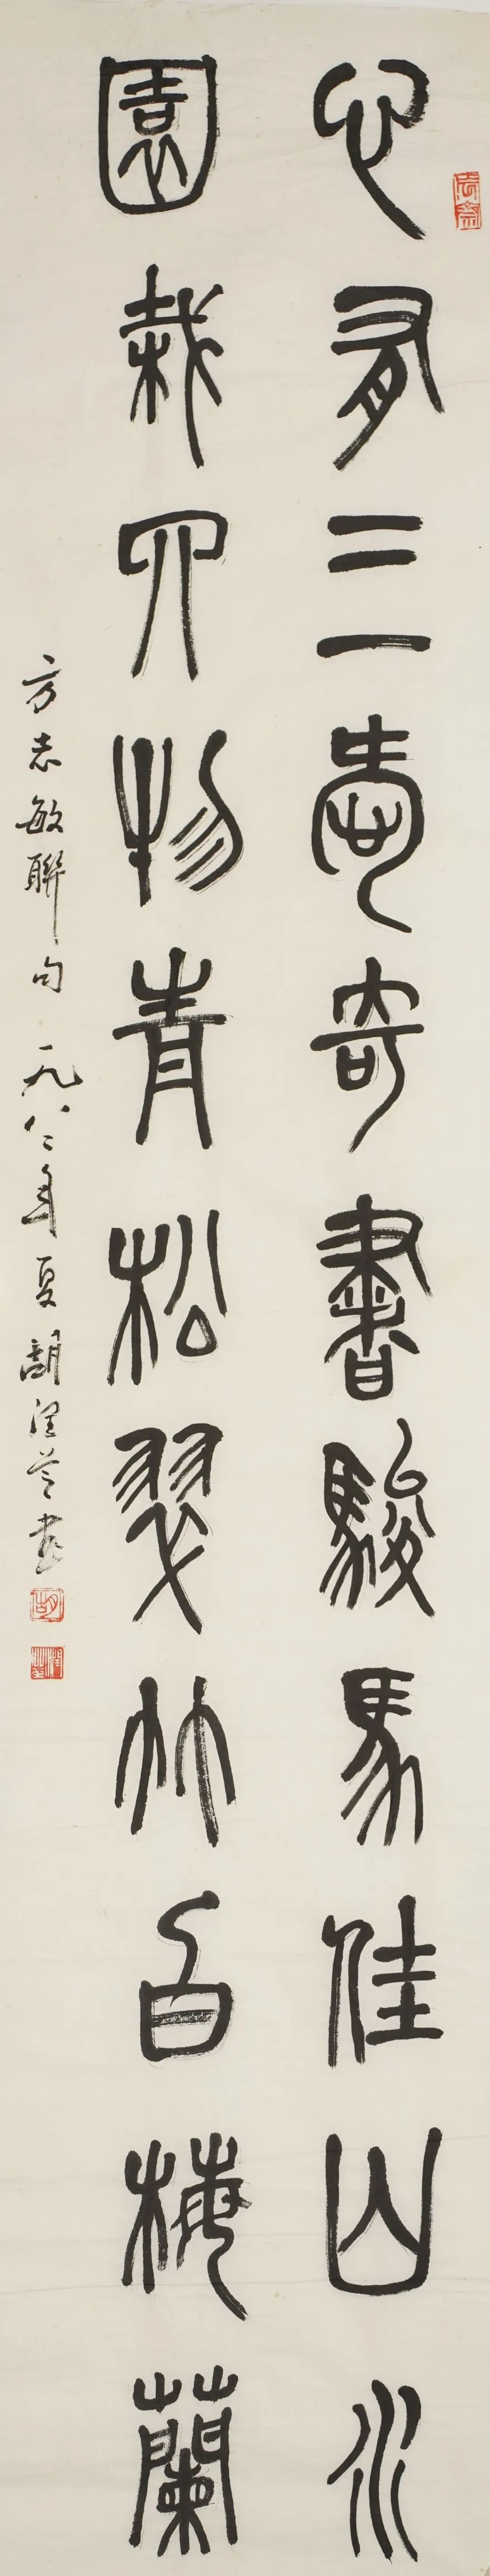 心有三愛奇書駿馬佳山水
園栽四物青松翠竹白梅蘭
方志敏聯句 一九八二年夏 胡書